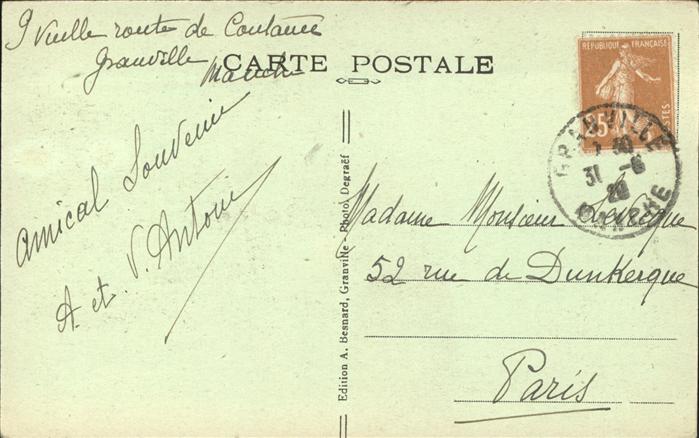 9 Vieille route de Coutances
Granville Manche
CARTE POSTALE
Amical Souvenir
A. et V. Antoni
Edition A. Besnard, Granville - Photo Degraëf
REPUBLIQUE FRANÇAISE
POSTES
GRANVILLE
31 -8
MANCHE
Madame Monsieur
52 rue de Dunkerque
Paris